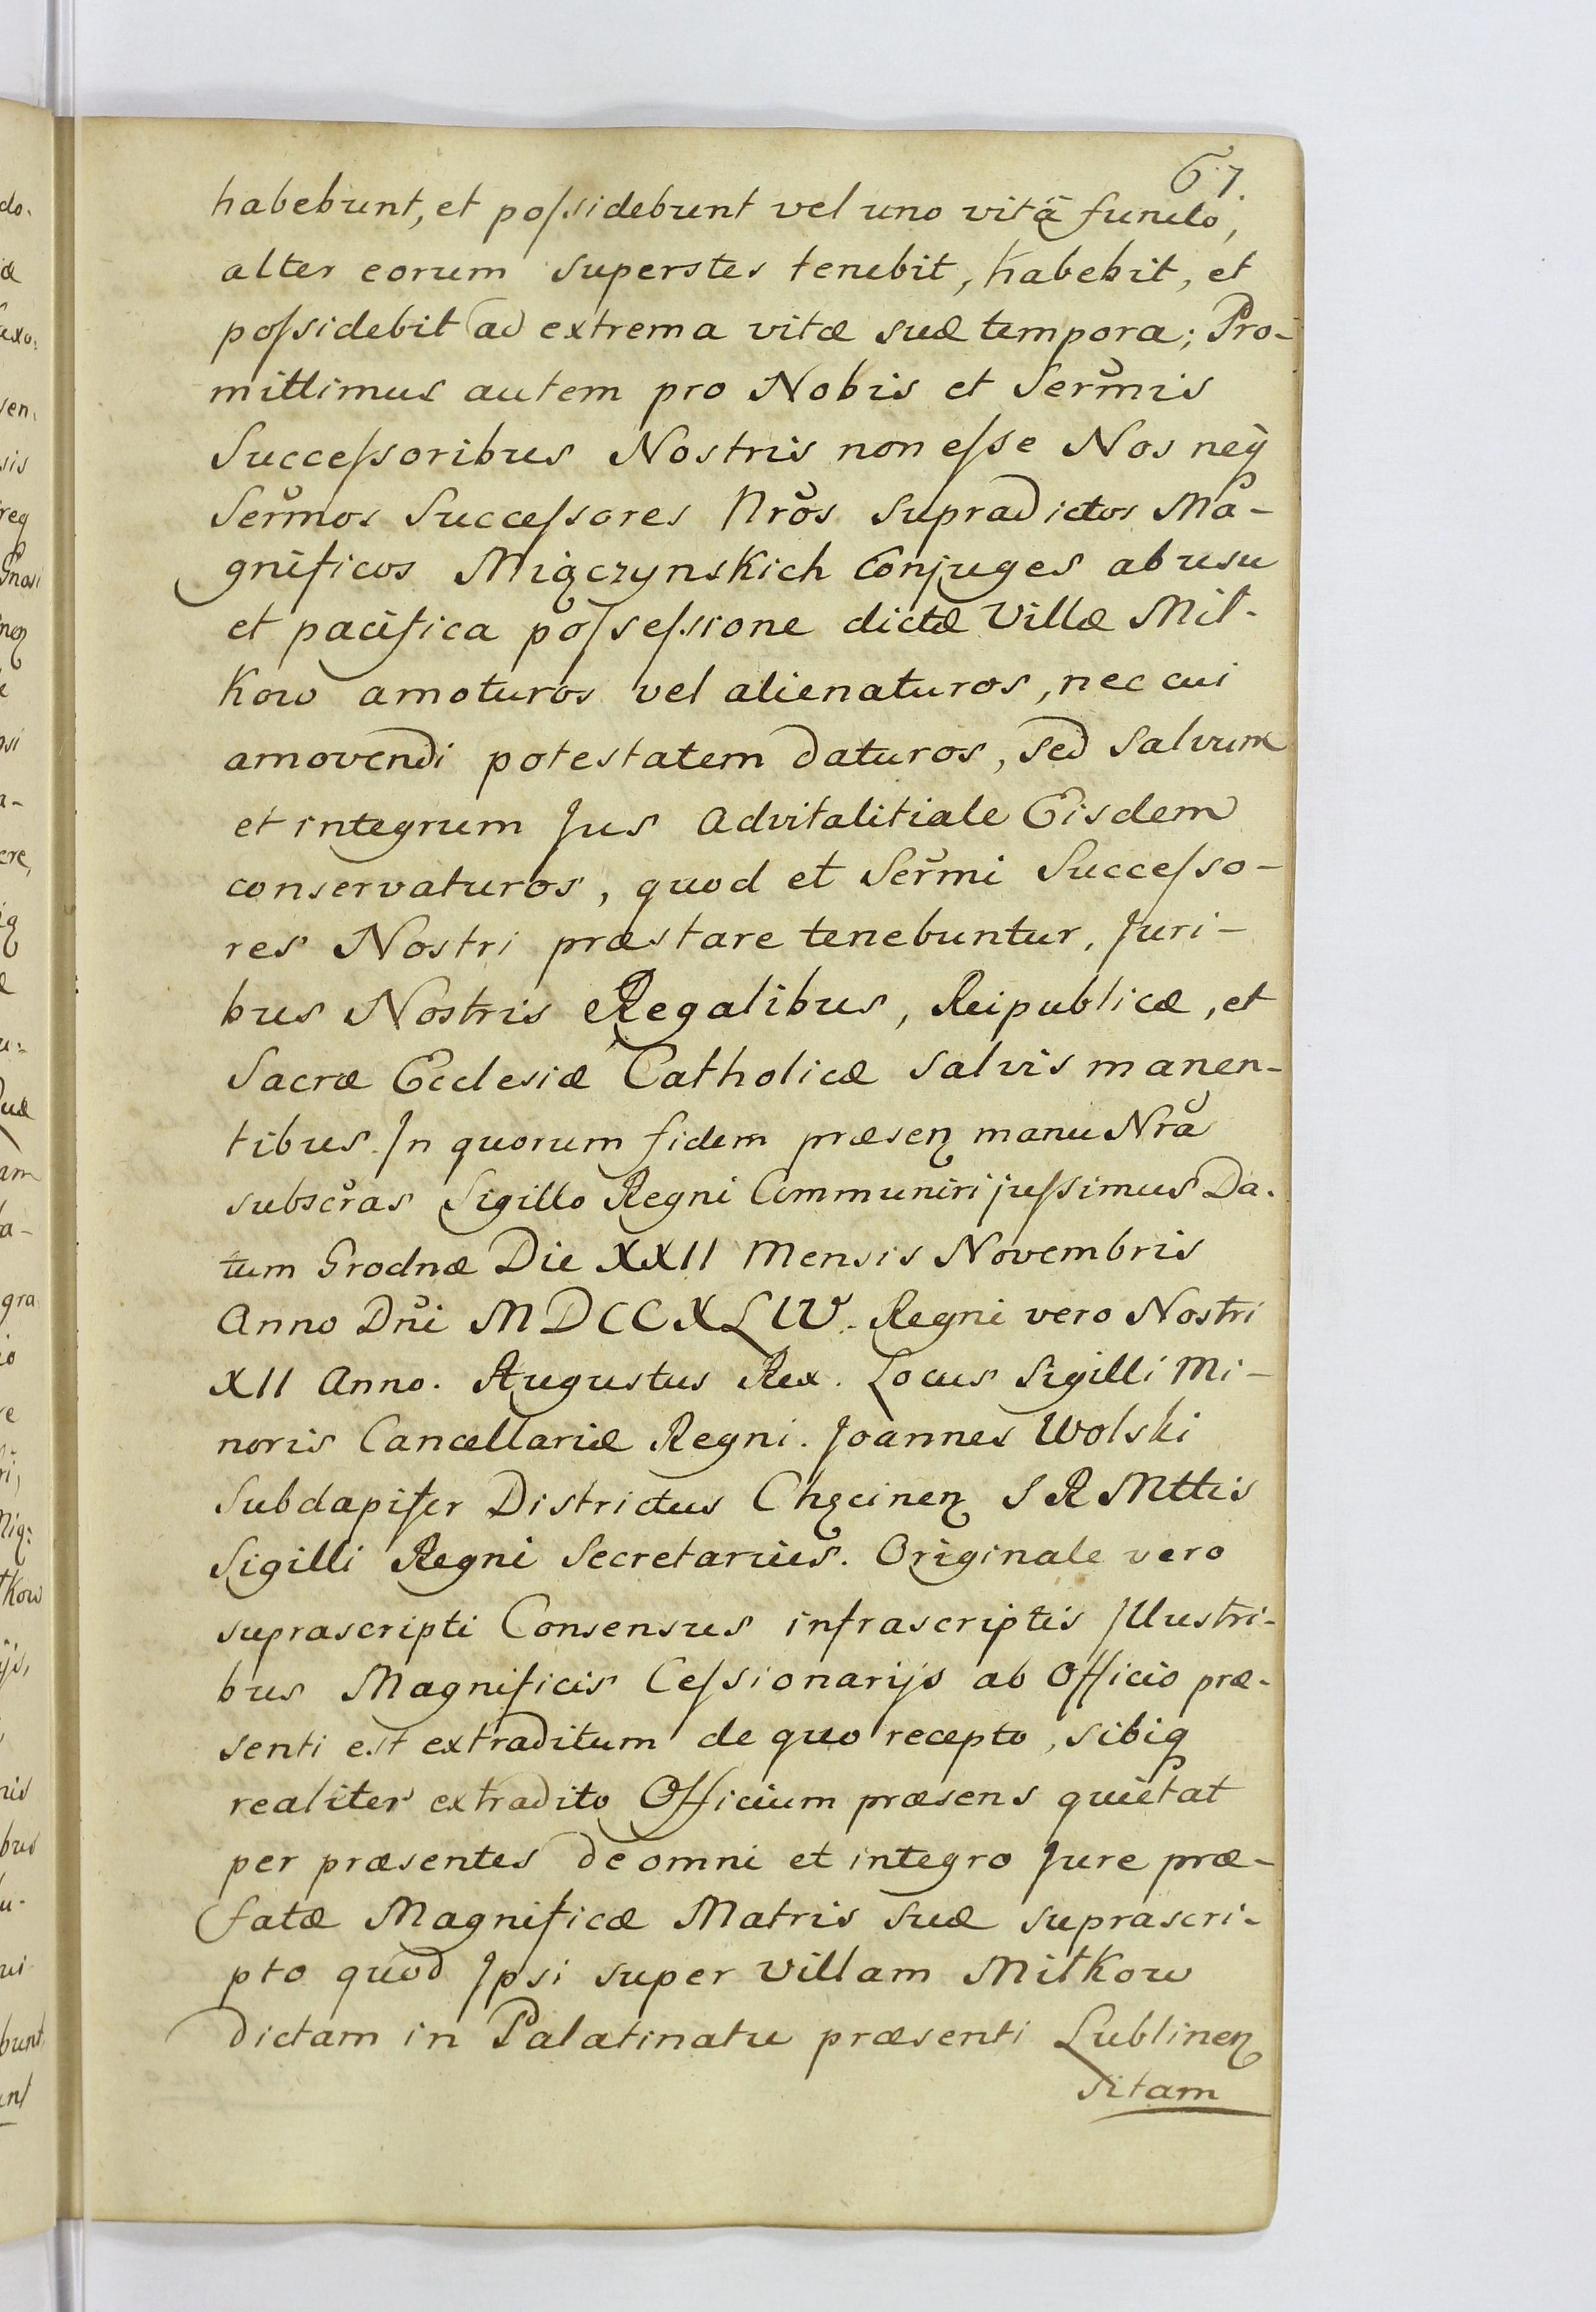 67
habebunt, et poſsidebunt vel uno vitâ functo,
alter eorum superstes tenebit, habebit, et
poſsidebit ad extrema vitæ suæ tempora; Pro-
mittimus autem pro Nobis et Serm̃is
Succeſsoribus Nostris non eſse Nos neq̀
Serm̃os Succeſsores Nrõs supradictos Ma-
gnificos Miączynskich Conjuges ab usu
et pacifica poſseſsione dictæ Villæ Mit-
kow amoturos vel alienaturos, nec cui
amovendi potestatem daturos, sed salvum
et integrum Jus Advitalitiale Eisdem
conservaturos, quod et Serm̃i Succeſso-
res Nostri præstare tenebuntur, Juri-
bus Nostris Regalibus, Reipublicæ, et
Sacræ Ecclesiæ Catholicæ salvis manen-
tibus. In quorum fidem præsenꝫ manu Nrã
subscr̃as Sigillo Regni Communiri juſsimus Da-
tum Grodnæ Die XXII Mensis Novembris
Anno Dñi MDCCXLIV. Regni vero Nostri
XII Anno. Augustus Rex. Locus Sigilli Mi-
noris Cancellariæ Regni. Joannes Wolski
Subdapifer Districtus Chęcinenꝫ S R Mttis
Sigilli Regni Secretarius. Originale vero
suprascripti Consensus infrascriptis Illustri-
bus Magnificis Ceſsionarijs ab Officio præ-
senti est extraditum de quo recepto, sibiq
realiter extradito Officium præsens quietat
per præsentes de omni et integro Jure præ-
fatæ Magnificæ Matris suæ suprascri-
pto quod Ipsi super Villam Mitkow
dictam in Palatinatu præsenti Lublinenꝫ
sitam